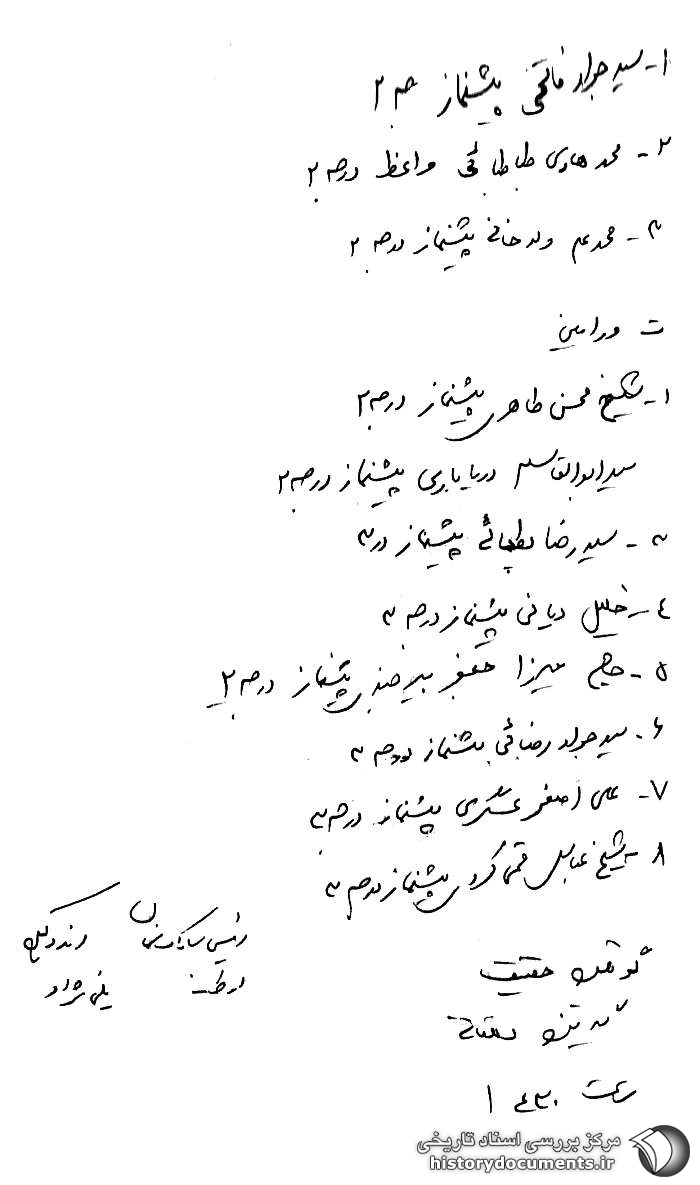 ۱- سید جواد فاتحی پیشنماز درجه ۲
۲- محمد هادی طباطبائی واعظ درجه ۲
۳- محمد علی ولدخانی پیشنماز درجه ۲
ت ورامین
۱- شیخ محسن طاهری پیشنماز درجه ۲
سید ابوالقاسم دریاباری پیشنماز درجه ۲
۳- سید رضا پیشنماز در ۳
٤- خلیل دیانی پیشنماز درجه ۳
۵- حاج میرزا جعفر پیشنماز درجه ۲
۶- سید جواد رضائی پیشنماز درجه ۳
۷- علی اصغر عسگری پیشنماز درجه ۳
۸- شیخ عباس پیشنماز درجه ۳
رئیس ساواک
گوینده حقیقت
گیرنده
ساعت ۱
مرکز بررسی اسناد تاریخی
historydocuments.ir